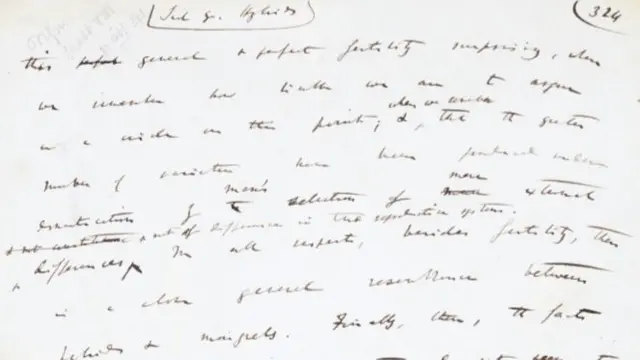 Hybrids 324
this general & perfect fertility surprising, when
we remember how liable we are to argue
in a circle on this point; & when we remember that the greater
number of varieties have been produced under
domestication by man's selection of mere external
differences, & not of differences in the reproductive system. In all respects, besides fertility, there
is a close general resemblance between
hybrids & mongrels. Finally, then, the facts